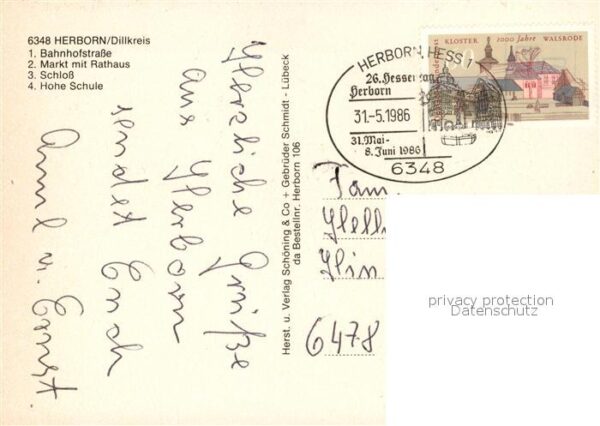 6348 HERBORN/Dillkreis
1. Bahnhofstraße
2. Markt mit Rathaus
3. Schloß
4. Hohe Schule
Herzliche Grüße
aus Herborn
sendet Euch
u. Ernst
Herst. u. Verlag Schöning & Co + Gebrüder Schmidt - Lübeck
da Bestellnr. Herborn 106
KLOSTER 1000 Jahre WALSRODE
HERBORN, HESS 1
26. Hessentag
Herborn
31.-5.1986
31. Mai-
8. Juni 1986
6348
Fam.
6478
privacy protection
Datenschutz